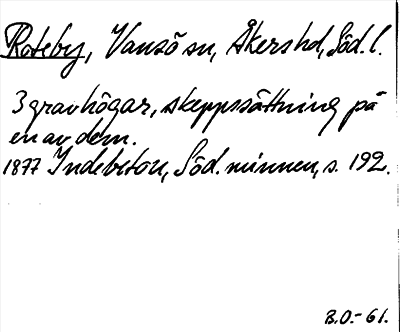 Roteby, Vansö sn, Åkers hd, Söd. l.
3 gravhögar, skeppssättning på
en av dem.
1877 Indebetou, Söd. minnen, s. 192.
B.O.-61.